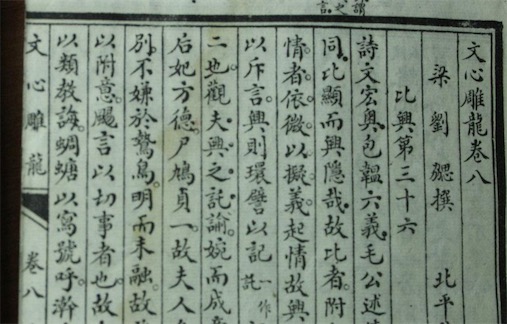 文心雕龍卷八
梁劉勰撰 北平
比興第三十六
詩文宏奥包韞六義。毛公述
同。比顯而興隱哉。故比者。附
情者。依微以擬義。起情故興
以斥言。興則環譬以記一作託
二也。觀夫興之託諭。婉而成
后妃方德。尸鳩貞一。故夫人
别。不嫌於鷙鳥。明而未融。故
以附意。颺言以切事者也。故
以類教誨。蜩螗以寫號呼。澣
文心雕龍 卷八